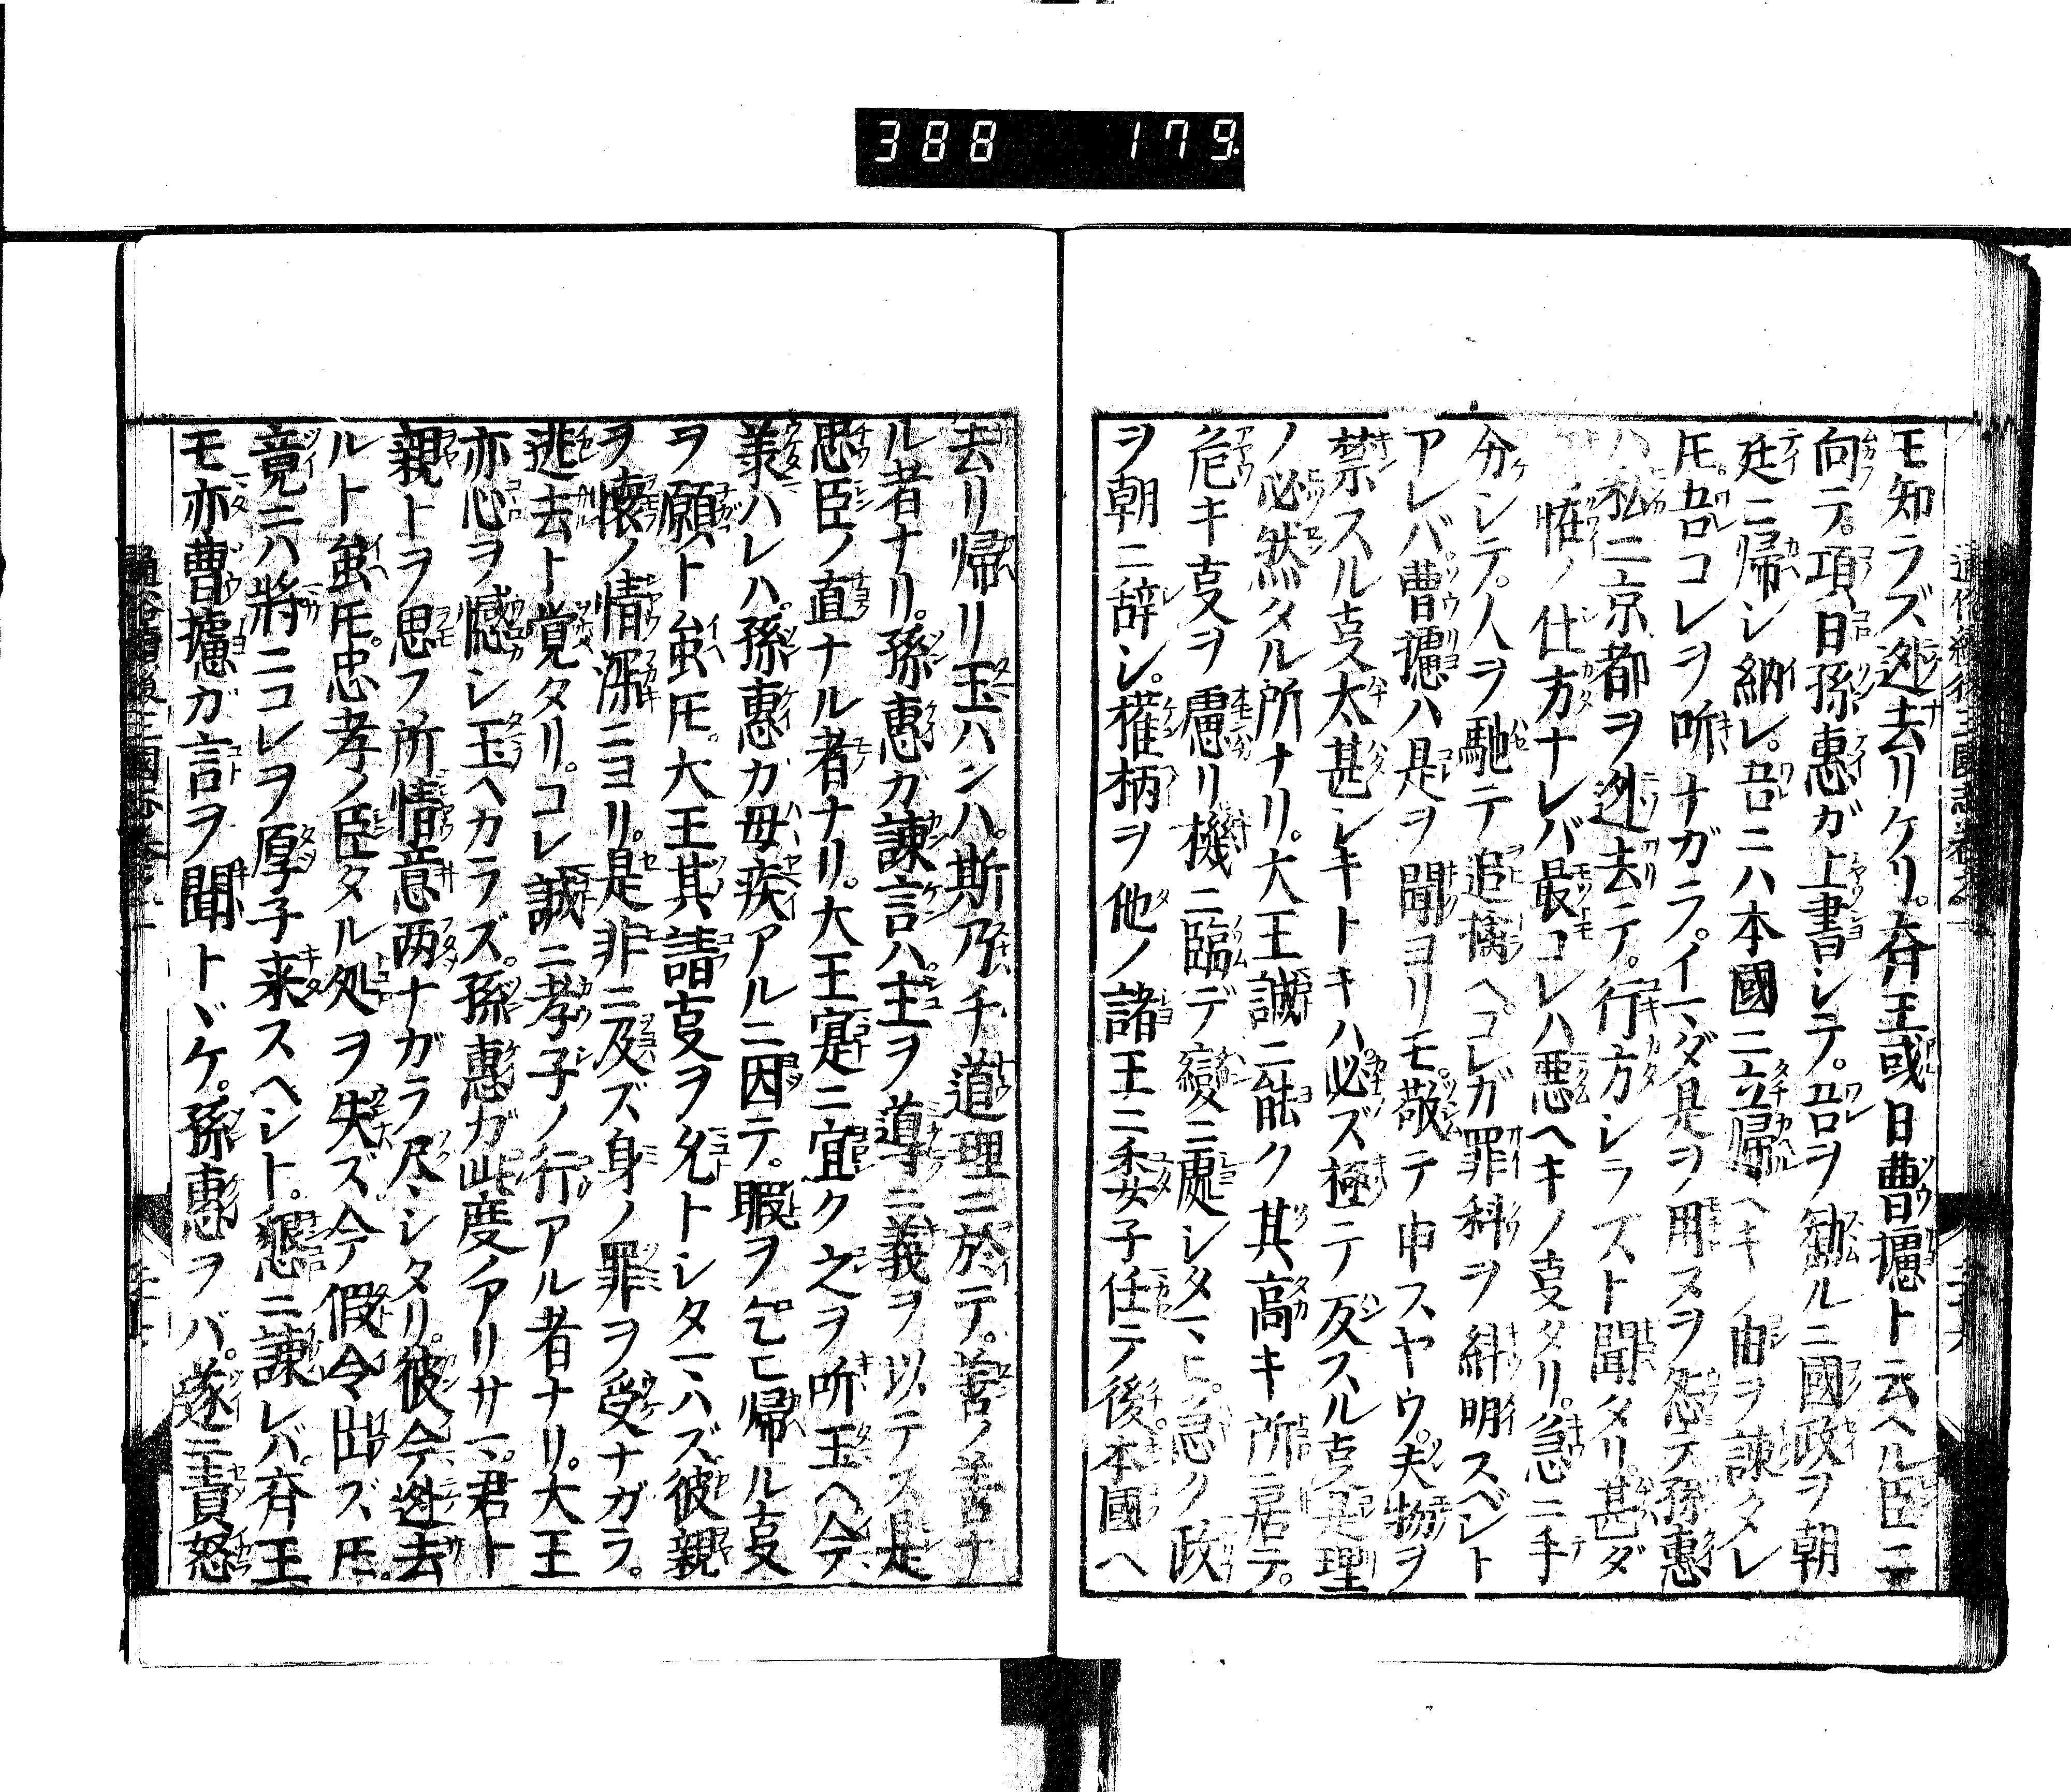 388 179
モ知ラズ迯去リケリ。斉王或日曹攄ト云ヘル臣ニ
向テ。項日孫惠ガ上書シテ。吾ヲ勧ルニ國政ヲ朝
廷ニ帰シ納レ。吾ニハ本國ニ立帰ルヘキノ由ヲ諫タレ
㐧。吾コレヲ听ナガラ。イマダ是ヲ用ヌヲ怨テ孫惠
ハ私ニ京都ヲ迯去テ。行方シラズト聞タリ。甚ダ
惟ノ仕方ナレバ最コレハ悪ヘキノ㕝タリ。急ニ手
分シテ。人ヲ馳テ追擒ヘ。コレガ罪科ヲ糾明スベシト
アレバ。曹攄ハ是ヲ聞ヨリモ。敬テ申スヤウ。夫物ヲ
禁スル㕝太甚シキトキハ。必ズ極テ反スル㕝是理
ノ必然タル所ナリ。大王誠ニ能ク其高キ所ニ居テ。
危キ㕝ヲ慮リ機ニ臨デ變ニ處シタマヒ。急ク政
ヲ朝ニ辞シ。權柄ヲ他ノ諸王ニ委子任テ後。本國ヘ
去リ帰リ玉ハンハ。斯乃チ道理ニ於テ。善ノ善ナ
ル者ナリ。孫惠カ諫言ハ。主ヲ導ニ義ヲ以テス是
忠臣ノ直ナル者ナリ。大王寔ニ宜ク之ヲ听玉ヘ。今
羕ハレハ。孫惠ガ母疾アルニ因テ。暇ヲ乞ヒ帰ル㕝
ヲ願ト虽㐧。大王其請㕝ヲ允トシタマハズ彼親
ヲ懐ノ情深ニヨリ。是非ニ及ズ身ノ罪ヲ受ナガラ。
逃去ト覚タリ。コレ誠ニ孝子ノ行アル者ナリ。大王
亦心ヲ憾シ玉ヘカラズ。孫惠ガ此度ノアリサマ。君ト
親トヲ思フ所情意两ナガラ尽シタリ。彼今迯去
ルト虽㐧。忠孝ノ臣タル処ヲ失ズ今假令出ズ㐧。
竟ニハ將ニコレヲ厚子来スヘシト。懇ニ諫レバ。斉王
モ亦曹攄ガ言ヲ聞トヾケ。孫惠ヲバ。遂ニ責怒